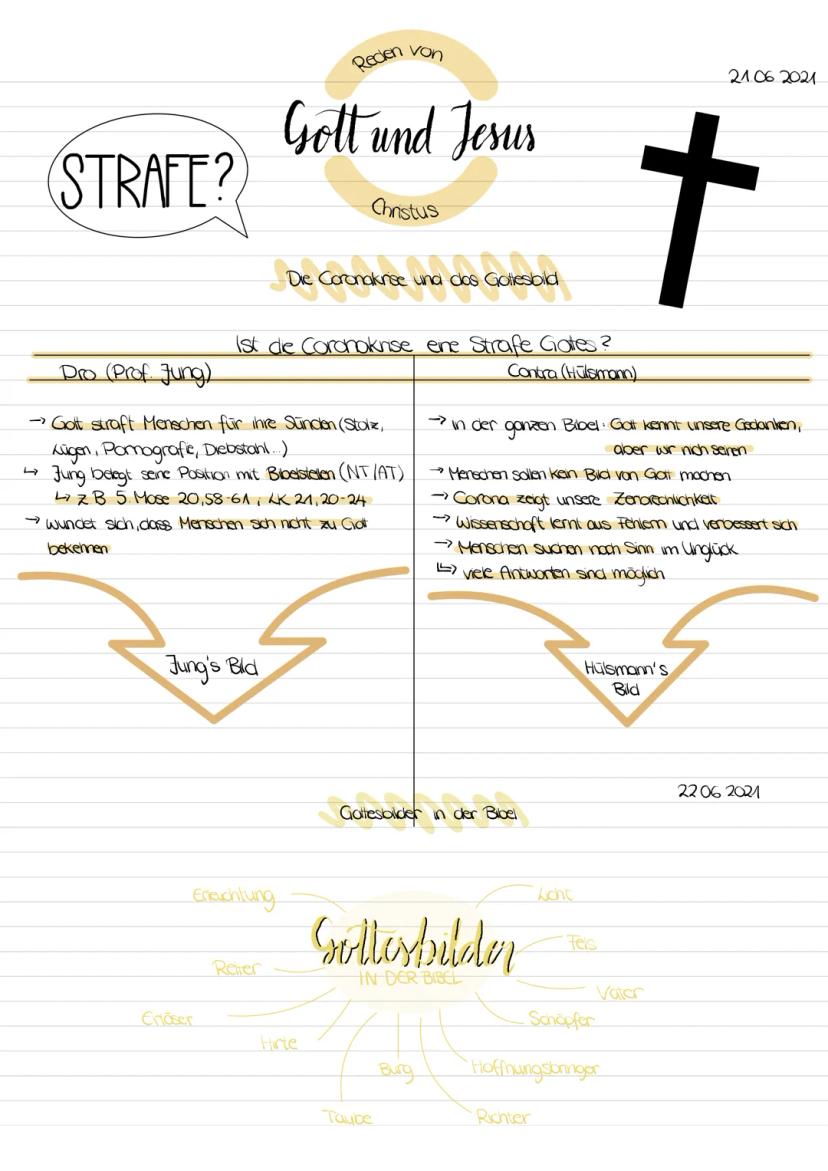 Reden von
21.06.2021
Gott und Jesus
STRAFE?
Christus
Die Coronakrise und das Gottesbild
Ist die Coronakrise eine Strafe Gottes?
Pro (Prof. Jung)
Contra (Hülsmann)
→ Gott straft Menschen für ihre Sünden (Stolz,
Lügen, Pornografie, Diebstahl...)
↳ Jung belegt seine Position mit Bibelstellen (NT/AT)
↳ z.B. 5. Mose 20,58-61, LK 21,20-24
→ wundet sich, dass Menschen sich nicht zu Gott
bekehren
→ in der ganzen Bibel: Gott kennt unsere Gedanken,
aber wir nich seinen
→ Menschen sollen kein Bild von Gott machen
→ Corona zeigt unsere Zerbrechlichkeit
→ Wissenschaft lernt aus Fehlern und verbessert sich
→ Menschen suchen nach Sinn im Unglück
↳ viele Antworten sind möglich
Jung's Bild
Hülsmann's
Bild
22.06.2021
Gottesbilder in der Bibel
Erleuchtung
Licht
Gottesbilder
IN DER BIBEL
Fels
Retter
Vater
Erlöser
Schöpfer
Hirte
Burg
Hoffnungsbringer
Taube
Richter